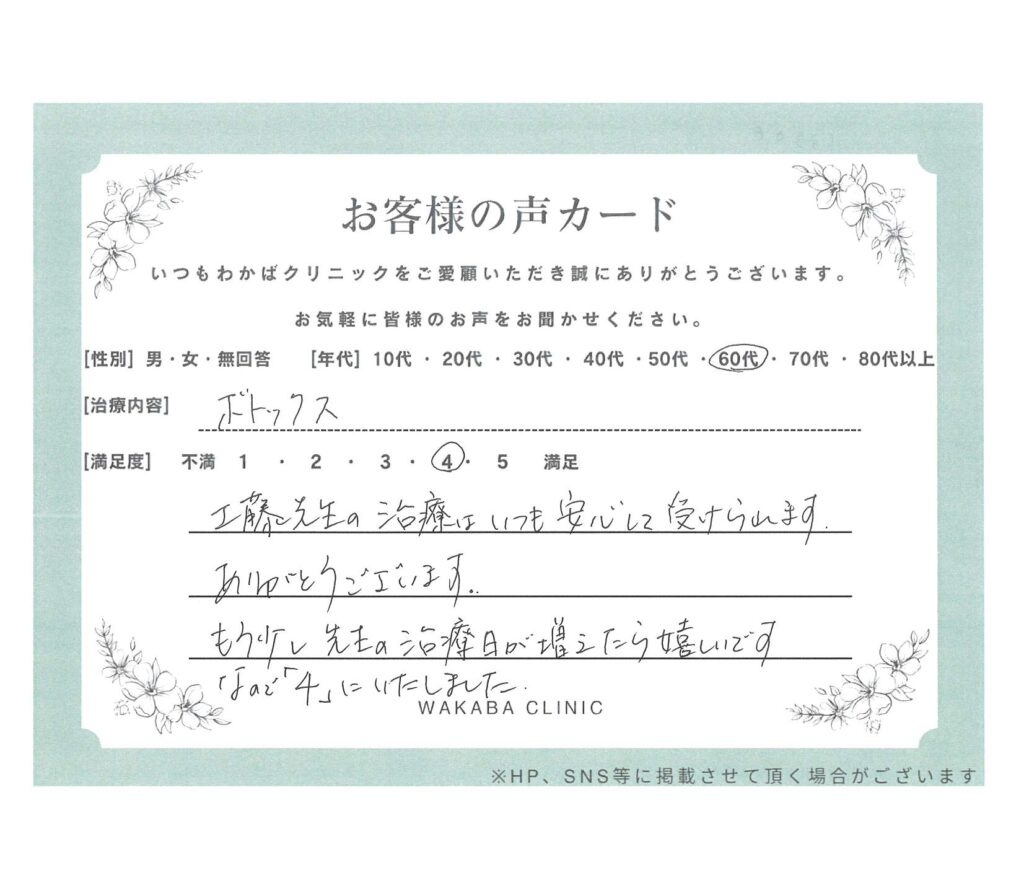 お客様の声カード
いつもわかばクリニックをご愛顧いただき誠にありがとうございます。
お気軽に皆様のお声をお聞かせください。
[性別] 男・女・無回答 [年代] 10代 ・ 20代 ・ 30代 ・ 40代 ・50代 ・ 60代 ・ 70代 ・ 80代以上
[治療内容] ボトックス
[満足度] 不満 1 ・ 2 ・ 3 ・ 4 ・ 5 満足
工藤先生の治療はいつも安心して受けられます.
ありがとうございます..
もう少し先生の治療日が増えたら嬉しいです
なので「4」にいたしました.
WAKABA CLINIC
※HP、SNS等に掲載させて頂く場合がございます